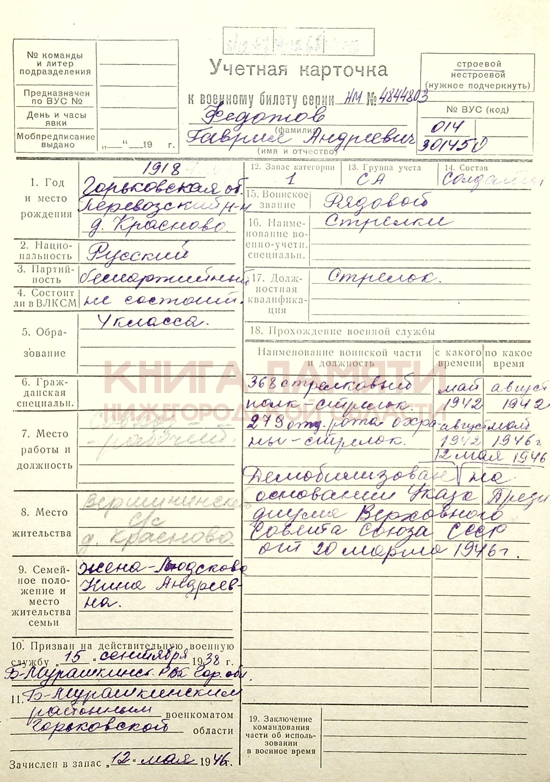 № команды
и литер
подразделения
Предназначен
по ВУС №
День и часы
явки
Мобпредписание
выдано „ “ 19 г.
Учетная карточка
к военному билету серии НМ № 4844803
Федотов
(фамилия)
Гаврил Андреевич
(имя и отчество)
строевой
нестроевой
(нужное подчеркнуть)
№ ВУС (код)
014
301450
1. Год
и место
рождения
1918
Горьковская об.
Перевозский р-н
д. Красново
2. Нацио-
нальность
Русский
3. Партий-
ность
беспартийный
4. Состоит
ли в ВЛКСМ
не состоит.
5. Обра-
зование
4 класса.
6. Граж-
данская
специальн.
7. Место
работы и
должность
рабочий
8. Место
жительства
Вершининский
с/с
д. Красново
9. Семей-
ное поло-
жение и
место
жительства
семьи
жена-Людскова
Нина Андреев-
на.
10. Призван на действительную военную
службу „15„ сентября 1938 г.
Б-Мурашкинск. РВК Гор. обл.
11. Б-Мурашкинским
районным военкоматом
Горьковской области
Зачислен в запас „12„ мая 1946 г.
12. Запас категории
1
13. Группа учета
СА
14. Состав
солдаты
15. Воинское
звание
Рядовой
16. Наиме-
нование во-
енно-учетн.
специальн.
Стрелки
17. Долж-
ностная
квалифика-
ция
Стрелок.
18. Прохождение военной службы
Наименование воинской части и должность
с какого времени
по какое время
368 стрелковый май август
полк-стрелок. 1942 1942
279 отд. рота охра- август май
ны-стрелок. 1942 1946 г.
12 мая 1946
Демобилизован на
основании Указа Прези
диума Верховного
Совета Союза ССР
от 20 марта 1946 г.
19. Заключение
командования
части об исполь-
зовании
в военное время
КНИГА ПАМЯТИ
НИЖЕГОРОДСКОЙ ОБЛАСТИ